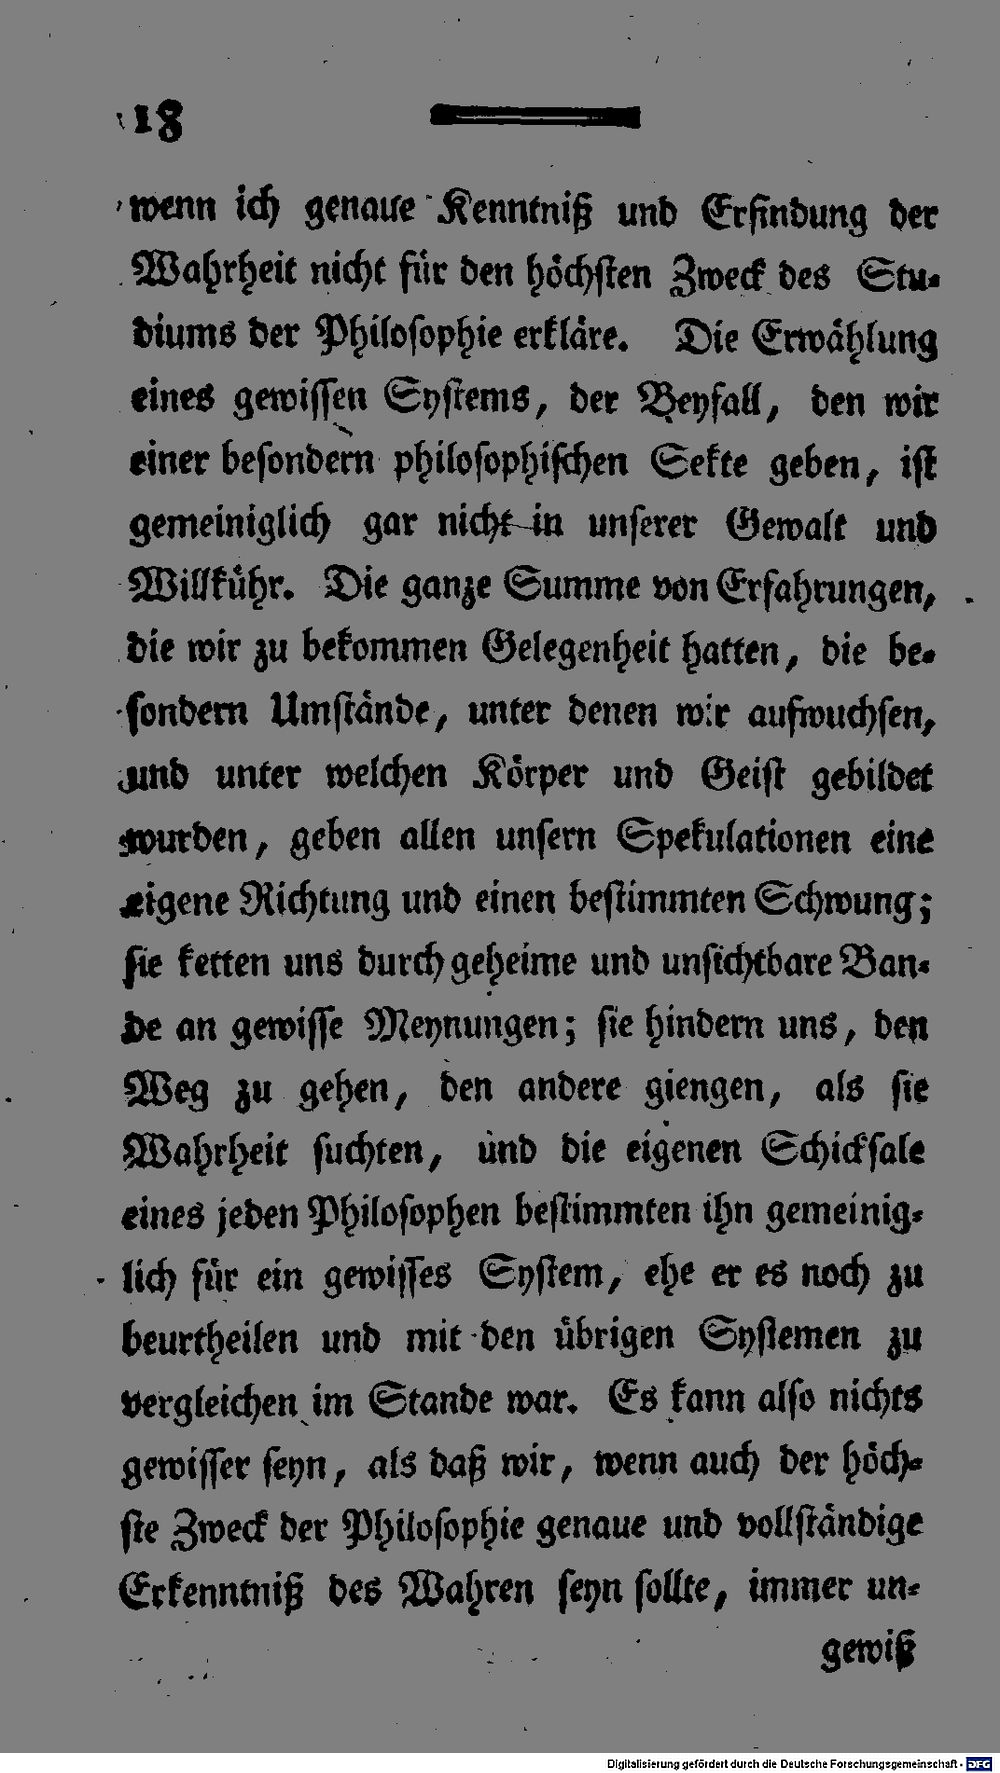 18
wenn ich genaue Kenntniß und Erfindung der
Wahrheit nicht für den höchsten Zweck des Stu-
diums der Philosophie erkläre. Die Erwählung
eines gewissen Systems, der Beyfall, den wir
einer besondern philosophischen Sekte geben, ist
gemeiniglich gar nicht in unserer Gewalt und
Willkühr. Die ganze Summe von Erfahrungen,
die wir zu bekommen Gelegenheit hatten, die be-
sondern Umstände, unter denen wir aufwuchsen,
und unter welchen Körper und Geist gebildet
wurden, geben allen unsern Spekulationen eine
eigene Richtung und einen bestimmten Schwung;
sie ketten uns durch geheime und unsichtbare Ban-
de an gewisse Meynungen; sie hindern uns, den
Weg zu gehen, den andere giengen, als sie
Wahrheit suchten, und die eigenen Schicksale
eines jeden Philosophen bestimmten ihn gemeinig-
lich für ein gewisses System, ehe er es noch zu
beurtheilen und mit den übrigen Systemen zu
vergleichen im Stande war. Es kann also nichts
gewisser seyn, als daß wir, wenn auch der höch-
ste Zweck der Philosophie genaue und vollständige
Erkenntniß des Wahren seyn sollte, immer un-
gewiß
Digitalisierung gefördert durch die Deutsche Forschungsgemeinschaft - DFG